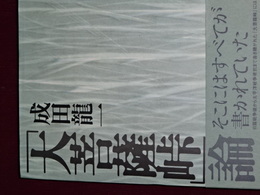 成田龍一
『大菩薩峠』
論
そこにはすべてが
書かれていた